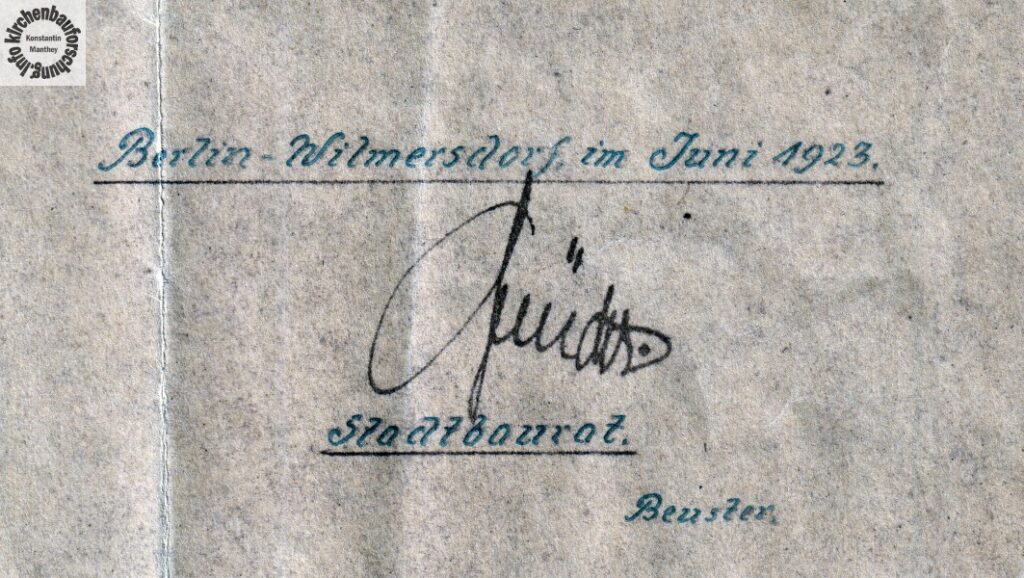 kirchenbauforschung.info
Konstantin
Manthey
Berlin-Wilmersdorf, im Juni 1923.
Stadtbaurat.
Beuster.